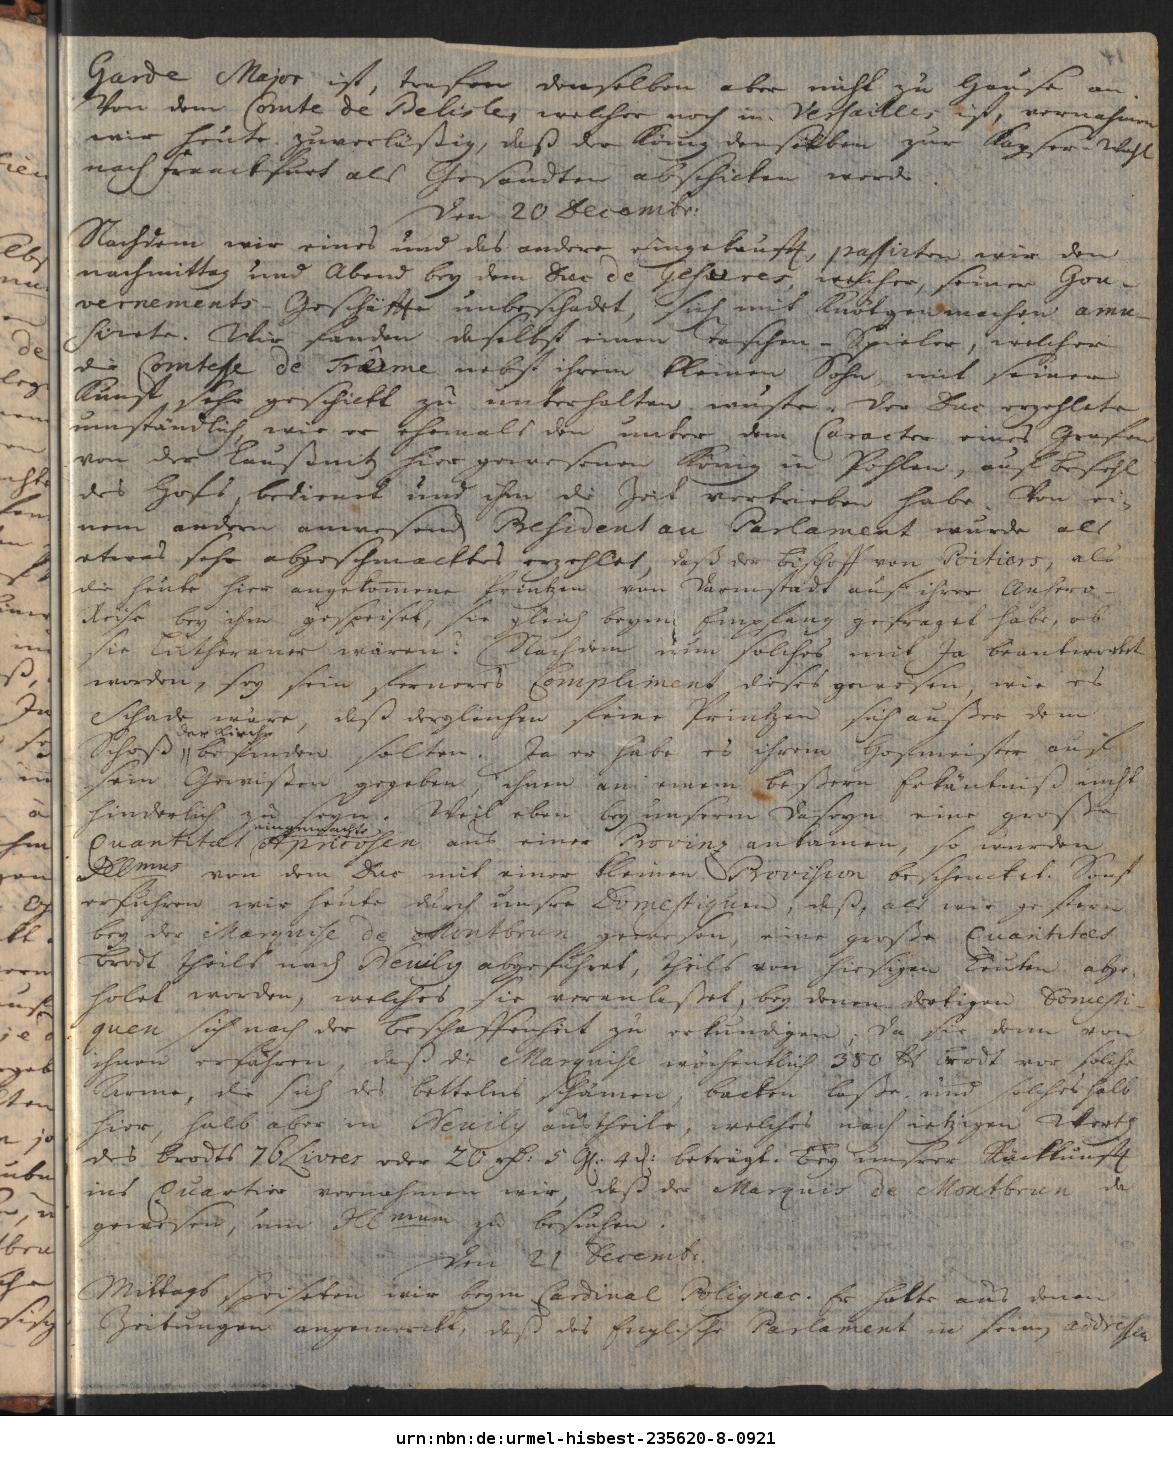 Garde Major ist, trafen denselben aber nicht zu Hause an.
Von dem Comte de Belisle, welcher noch in Versailles ist, vernahmen
wir heute zuverläßig, daß der König denselben zur Kayser-Wahl
nach Franckfurt als Gesandten abschicken werde.
Den 20 Decembr:
Nachdem wir eines und das andere eingekaufft, passirten wir den
nachmittag und Abend bey dem Duc de Gesvres, welcher, seiner Gou-
vernements-Geschäffte unbeschadet, sich mit Knötgen machen amu-
sirete. Wir fanden daselbst einen Taschen-Spieler, welcher
die Comtesse de Trême nebst ihrem kleinen Sohn mit seiner
Kunst sehr geschickt zu unterhalten wuste. Der Duc erzehlete
umständlich, wie er ehemals den unter dem Caracter eines Grafen
von der Laußnitz hier gewesenen König in Pohlen, auf Befehl
des Hofs, bedienet und ihm die Zeit vertrieben habe. Von ei-
nem andern anwesend President au Parlament wurde als
etwas sehr abgeschmacktes erzehlet, daß der Bischoff von Poitiers, als
die heute hier angekomene Printzen von Darmstadt auf ihrer Anhero-
Reise bey ihm gespeiset, sie gleich beym Empfang gefraget habe, ob
sie Lutheraner wären? Nachdem nun solches mit Ja beantwortet
worden, sey sein ferneres Compliment dieses gewesen, wie es
Schade wäre, daß dergleichen feine Printzen sich außer dem
Schoß der Kirche befinden solten. Ja er habe es ihrem Hofmeister auf
sein Gewißen gegeben, ihnen an einem beßern Erkäntniß nicht
hinderlich zu seyn. Weil eben bey unserm Daseyn eine große
Quantitæt eingemachte Apricosen aus einer Provinz ankamen, so wurden
Illmus von dem Duc mit einer kleinen Provision beschencket. Sonst
erfuhren wir heute durch unsre Domestiquen, daß, als wir gestern
bey der Marquise de Montbrun gewesen, eine große Quantitæt
Brodt theils nach Neuily abgeführet, theils von hiesigen Leuten abge-
holet worden, welches sie veranlaßet, bey denen dortigen Domesti-
quen sich nach der Beschaffenheit zu erkundigen; Da sie denn von
ihnen erfahren, daß die Marquise wöchentlich 380 lb Brodt vor solche
Arme, die sich des bettelns schämen, backen laße und solches halb
hier, halb aber in Neuily austheile, welches nach ietzigen Werth
des Brodts 76 Livres oder 20 rh: 5 gl: 4 d: beträgt. Bey unserer Rückkunfft
ins Quartier vernahmen wir, daß der Marquis de Montbrun da
gewesen, um Illmum zu besuchen.
Den 21 Decembr.
Mittags speiseten wir beym Cardinal Polignac. Er hatte aus denen
Zeitungen angemerckt, daß das Englische Parlament in seiner addressen